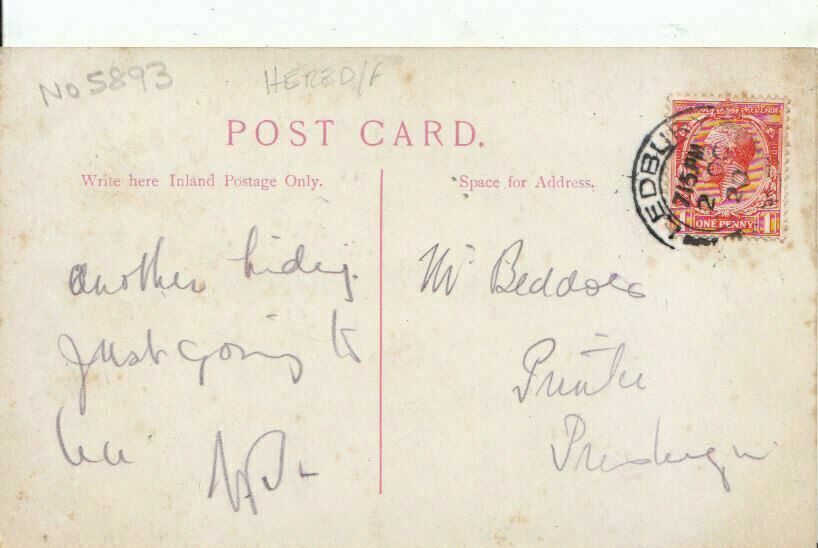 No 5893
HERED/F
POST CARD.
Write here Inland Postage Only.
Space for Address.
LEDBU
7 15 PM
2
20
POSTAGE REVENUE
ONE PENNY
1 1
another hiding.
Just going to
Mr Beddoes
Printer